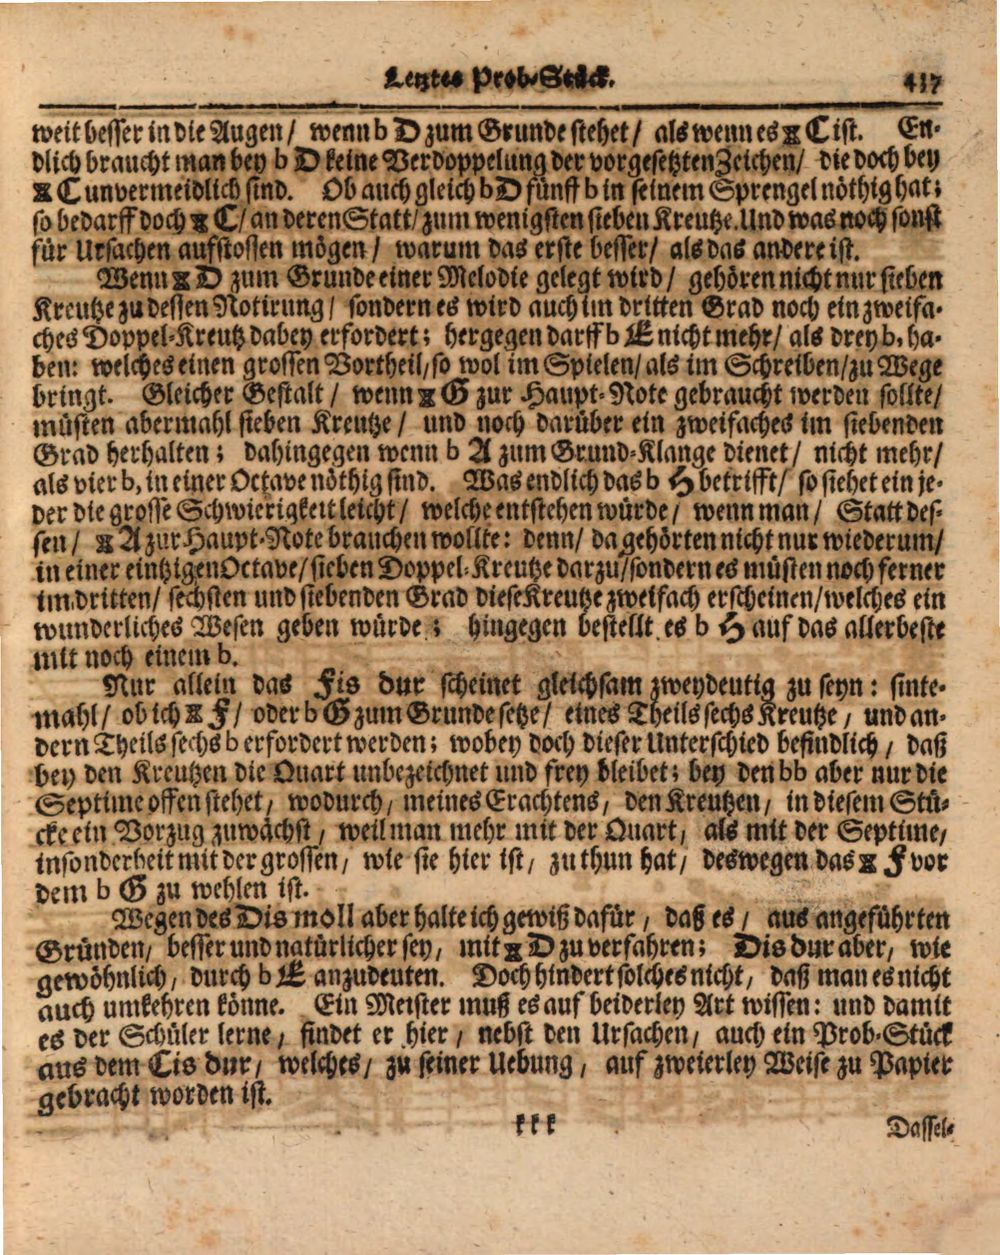 Letztes Prob-Stück. 437
weit besser in die Augen/ wenn b D zum Grunde stehet/ als wenn es ⌗ C ist. En-
dlich braucht man bey b D keine Verdoppelung der vorgesetzten Zeichen/ die doch bey
⌗ C unvermeidlich sind. Ob auch gleich b D fünff b in seinem Sprengel nöthig hat;
so bedarff doch ⌗ C/ an deren Statt/ zum wenigsten sieben Kreutze. Und was noch sonst
für Ursachen aufstossen mögen/ warum das erste besser/ als das andere ist.
Wenn ⌗ D zum Grunde einer Melodie gelegt wird/ gehören nicht nur sieben
Kreutze zu dessen Notirung/ sondern es wird auch im dritten Grad noch ein zweifa-
ches Doppel-Kreutz dabey erfordert; hergegen darff b E nicht mehr/ als drey b, ha-
ben: welches einen grossen Vortheil, so wol im Spielen/ als im Schreiben/ zu Wege
bringt. Gleicher Gestalt/ wenn ⌗ G zur Haupt-Note gebraucht werden sollte/
müsten abermahl sieben Kreutze/ und noch darüber ein zweifaches im siebenden
Grad herhalten; dahingegen wenn b A zum Grund-Klange dienet/ nicht mehr/
als vier b, in einer Octave nöthig sind. Was endlich das b H betrifft/ so siehet ein je-
der die grosse Schwierigkeit leicht/ welche entstehen würde/ wenn man/ Statt des-
sen/ ⌗ A zur Haupt-Note brauchen wollte: denn/ da gehörten nicht nur wiederum/
in einer eintzigen Octave/ sieben Doppel-Kreutze darzu/ sondern es müsten noch ferner
im dritten/ sechsten und siebenden Grad diese Kreutze zweifach erscheinen/ welches ein
wunderliches Wesen geben würde; hingegen bestellt es b H auf das allerbeste
mit noch einem b.
Nur allein das Fis dur scheinet gleichsam zweydeutig zu seyn: sinte-
mahl/ ob ich ⌗ F/ oder b G zum Grunde setze/ eines Theils sechs Kreutze, und an-
dern Theils sechs b erfordert werden; wobey doch dieser Unterschied befindlich, daß
bey den Kreutzen die Quart unbezeichnet und frey bleibet; bey den bb aber nur die
Septime offen stehet, wodurch, meines Erachtens, den Kreutzen, in diesem Stü-
cke ein Vorzug zuwächst, weil man mehr mit der Quart, als mit der Septime,
insonderheit mit der grossen, wie sie hier ist, zu thun hat, deswegen das ⌗ F vor
dem b G zu wehlen ist.
Wegen des Dis moll aber halte ich gewiß dafür, daß es, aus angeführten
Gründen, besser und natürlicher sey, mit ⌗ D zu verfahren; Dis dur aber, wie
gewöhnlich, durch b E anzudeuten. Doch hindert solches nicht, daß man es nicht
auch umkehren könne. Ein Meister muß es auf beiderley Art wissen: und damit
es der Schüler lerne, findet er hier, nebst den Ursachen, auch ein Prob-Stück
aus dem Cis dur, welches, zu seiner Uebung, auf zweierley Weise zu Papier
gebracht worden ist.
k k k Dassel-